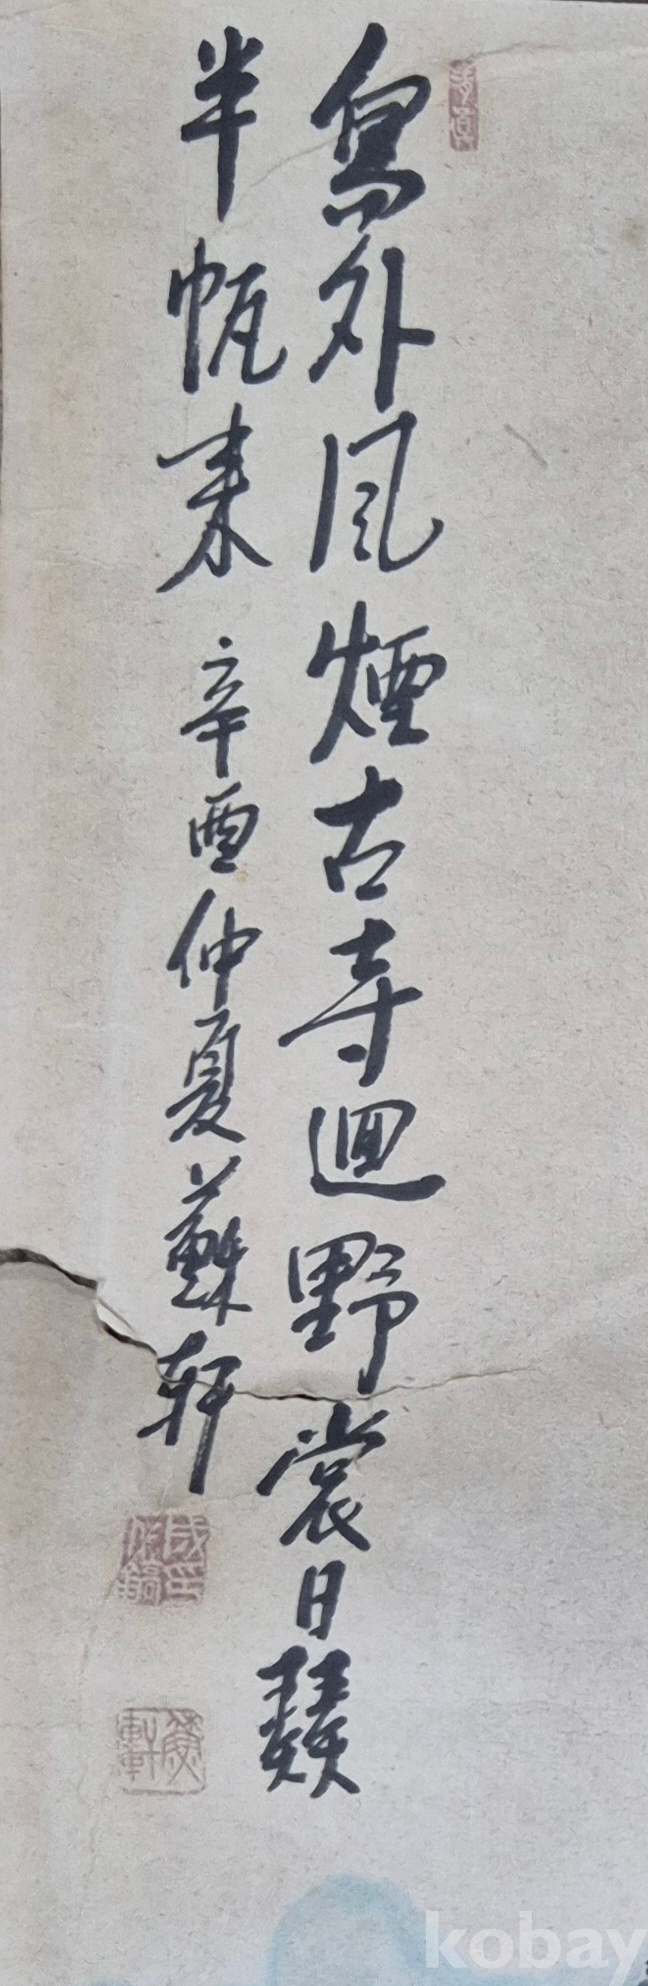 鳥外風煙古寺迴野裳日
半帆来 辛酉仲夏 軒
kobay